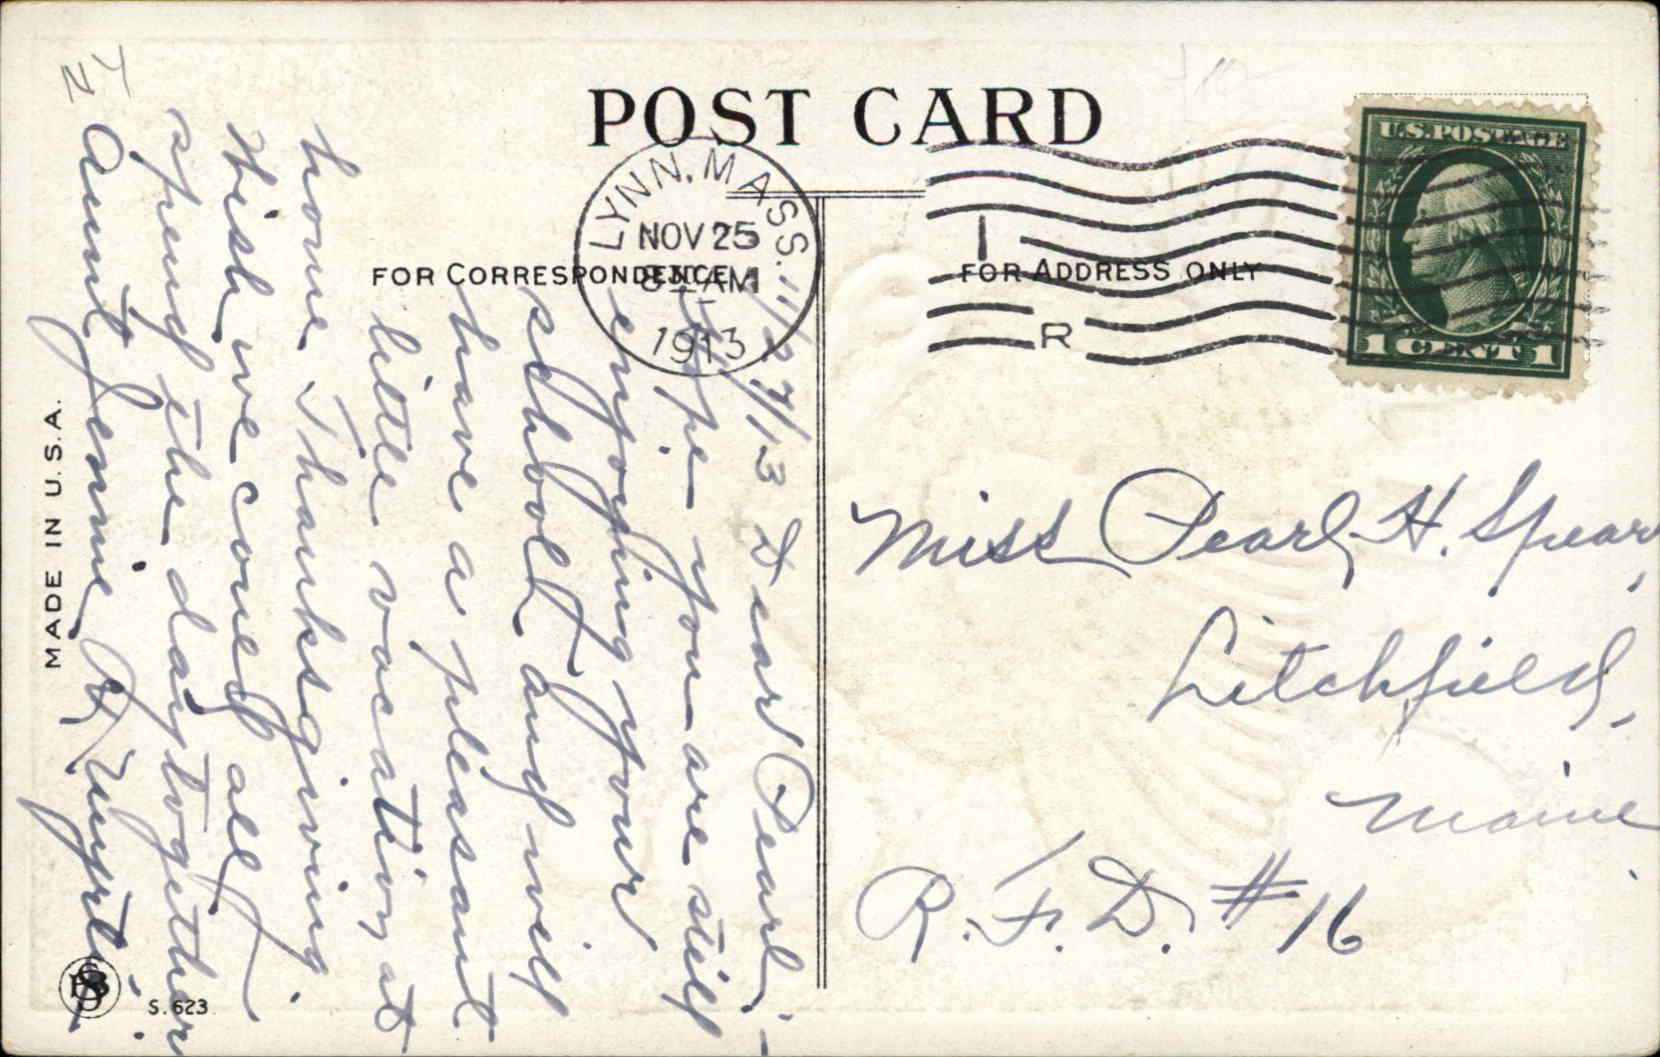 POST CARD
FOR CORRESPONDENCE
FOR ADDRESS ONLY
LYNN, MASS.
NOV 25
AM
1913
1
R
U.S. POSTAGE
1 CENT 1
Miss Pearl H. Spear,
Litchfield,
Maine
R. F. D. #16
11/24/13 Dear Pearl,
Hope you are still
enjoying your
school and will
have a pleasant
little vacation at
home Thanksgiving.
Wish we could all
spend the day together
Aunt Jennie & Myrtie
MADE IN U.S.A.
S. 623
NY